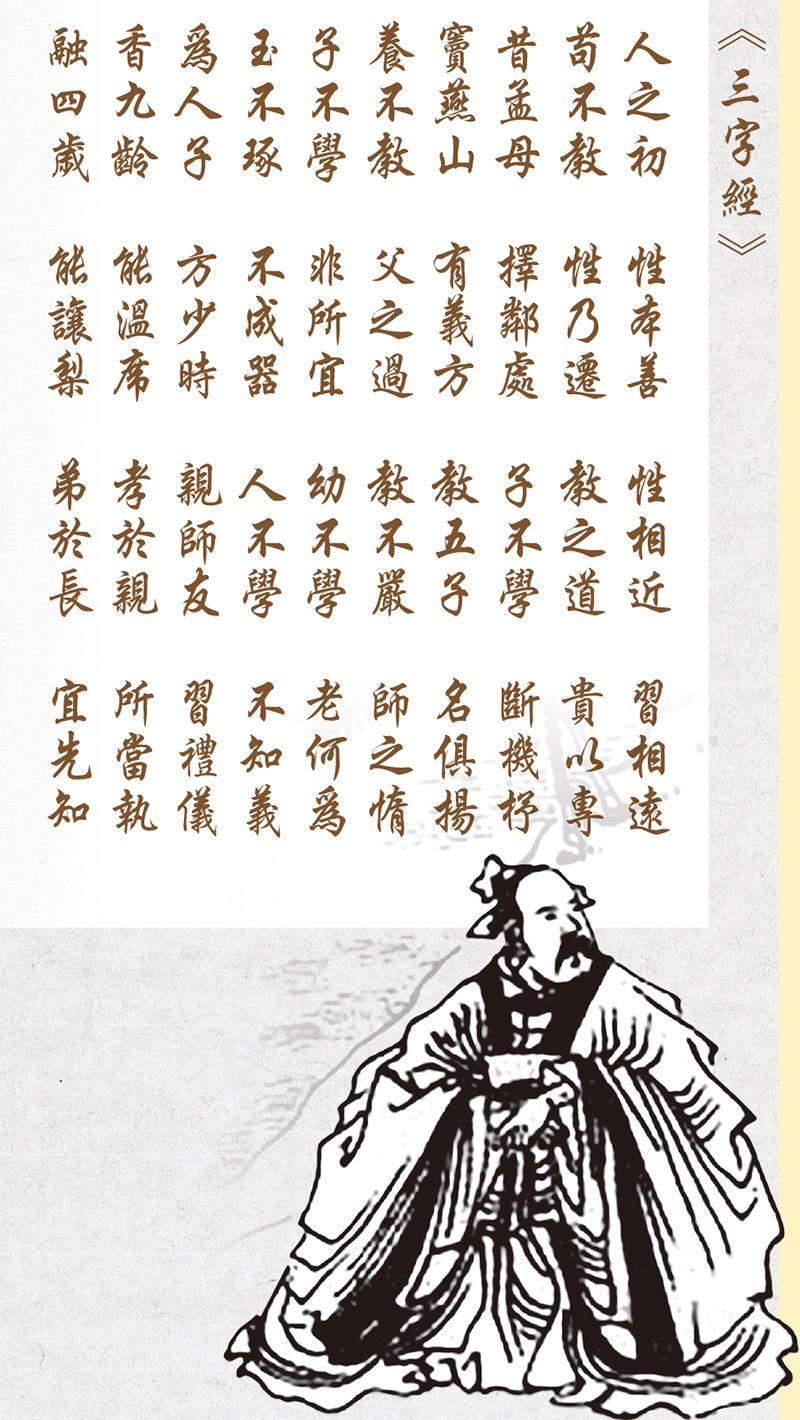 《三字經》
人之初 性本善 性相近 習相遠
苟不教 性乃遷 教之道 貴以專
昔孟母 擇鄰處 子不學 斷機杼
竇燕山 有義方 教五子 名俱揚
養不教 父之過 教不嚴 師之惰
子不學 非所宜 幼不學 老何為
玉不琢 不成器 人不學 不知義
為人子 方少時 親師友 習禮儀
香九齡 能溫席 孝於親 所當執
融四歲 能讓梨 弟於長 宜先知